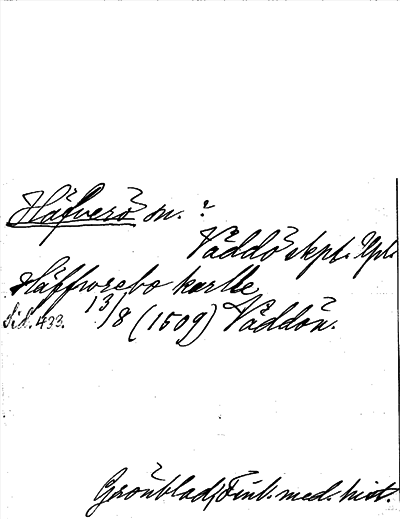 Häfverö sn. ?
Väddö skpt. Upl.
Häffworebo karlle
Sid. 433. 13/8 (1509) Väddön.
Grönblad, Finl. med. hist.